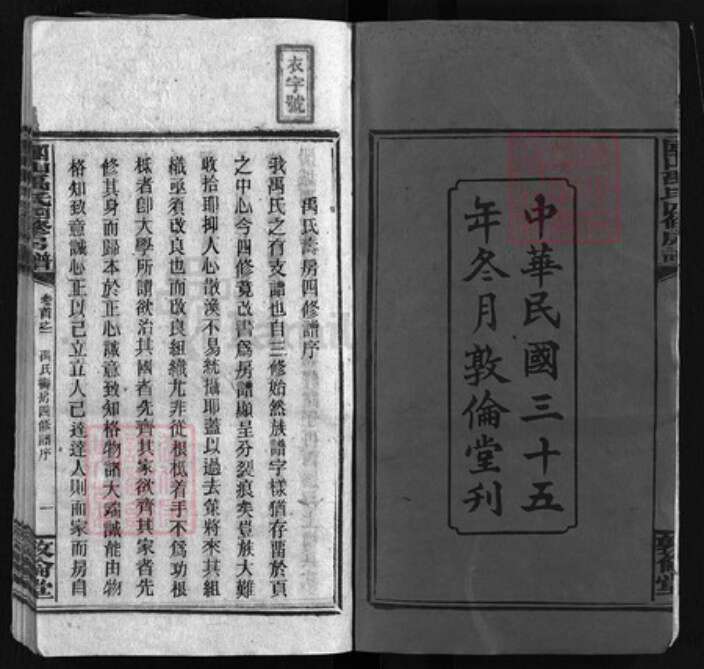 中華民國三十五
年冬月敦倫堂刊
衣字號
禹氏壽房四修譜序
我禹氏之有支譜也自三修始然族譜字樣猶存罶於頁
之中心今四修竟改書爲房譜顯呈分裂痕矣豈族大難
收拾耶抑人心散渙不易統攝耶蓋以過去策將來其組
織亟須改良也而改良組織尤非從根柢着手不爲功根
柢者卽大學所謂欲治其國者先齊其家欲齊其家者先
修其身而歸本於正心誠意致知格物諸大端誠能由物
格知致意誠心正以己立立人己達達人則而家而房自
卷首之一
禹氏壽房四修譜序
一
敦倫堂